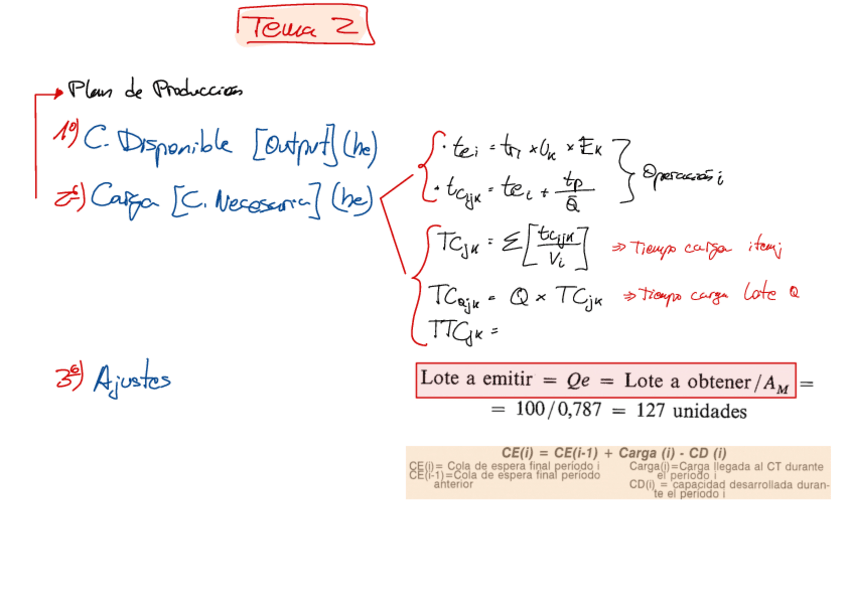 Tema 2
Plan de Produccion
1º) C. Disponible [Output] (he)
2º) Carga [C. Necesaria] (he)
· tei = tri × Uk × Ek
· tcijk = tei + tp/Q
Operación i
TCjk = Σ [tcijk / Vi] ⇒ Tiempo carga item j
TCQjk = Q × TCjk ⇒ Tiempo carga lote Q
TTCjk =
3º) Ajustes
Lote a emitir = Qe = Lote a obtener/A_M =
= 100/0,787 = 127 unidades
CE(i) = CE(i-1) + Carga (i) - CD (i)
CE(i)= Cola de espera final período i
CE(i-1)=Cola de espera final período
anterior
Carga(i)=Carga llegada al CT durante
el período i
CD(i) = capacidad desarrollada duran-
te el período i